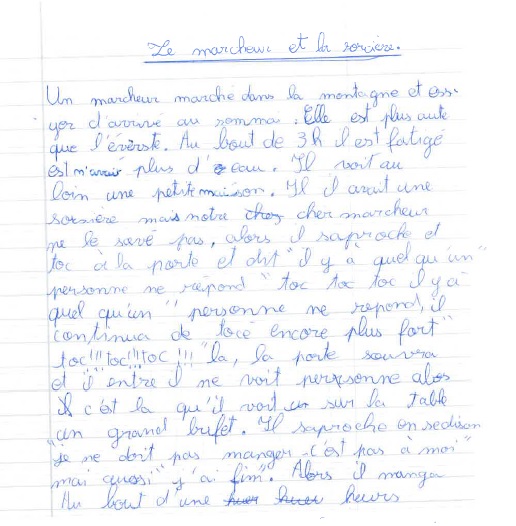 Le marcheur et la sorcière.
Un marcheur marche dans la montagne et ess-
yer d'arrivé au somma. Elle est plus aute
que l'éverste. Au bout de 3h il est fatigé
est n'avair plus d'eau. Il voit au
loin une petit maison. Il il avait une
sorsière mais notre chez cher marcheur
ne le savé pas, alors il saproche et
toc à la porte et dit "il y à quel qu'un"
personne ne répond "toc toc toc il y à
quel qu'un" personne ne repond, il
continua de tocé encore plus fort"
toc!!! toc!!! toc!!! "la, la porte souvra
et il entre il ne voit perssonne alos
Il c'est la qu'il voit un sur la table
"un grand bufet. Il saproche en sedison
"je ne doit pas manger c'est pas à moi"
mai quosi "j'ai fim". Alors il manga
Au bout d'une heurs